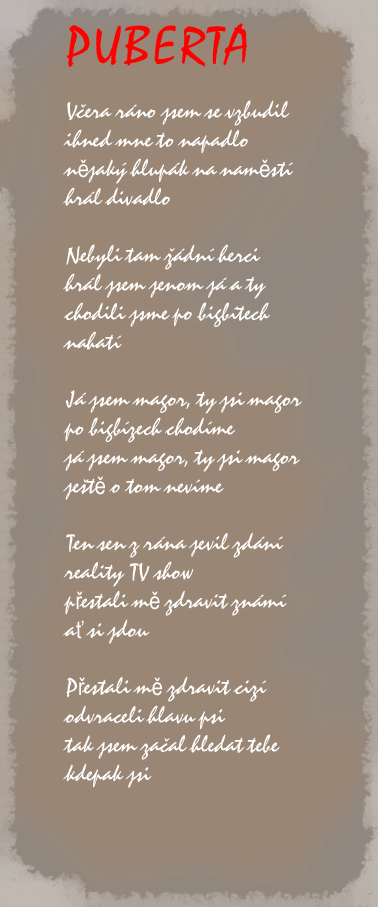 PUBERTA
Včera ráno jsem se vzbudil
ihned mne to napadlo
nějaký hlupák na naměstí
hrál divadlo
Nebyli tam žádní herci
hrál jsem jenom já a ty
chodili jsme po bigbítech
nahatí
Já jsem magor, ty jsi magor
po bigbízech chodíme
já jsem magor, ty jsi magor
ještě o tom nevíme
Ten sen z rána jevil zdání
reality TV show
přestali mě zdravit známí
ať si jdou
Přestali mě zdravit cizí
odvraceli hlavu psi
tak jsem začal hledat tebe
kdepak jsi